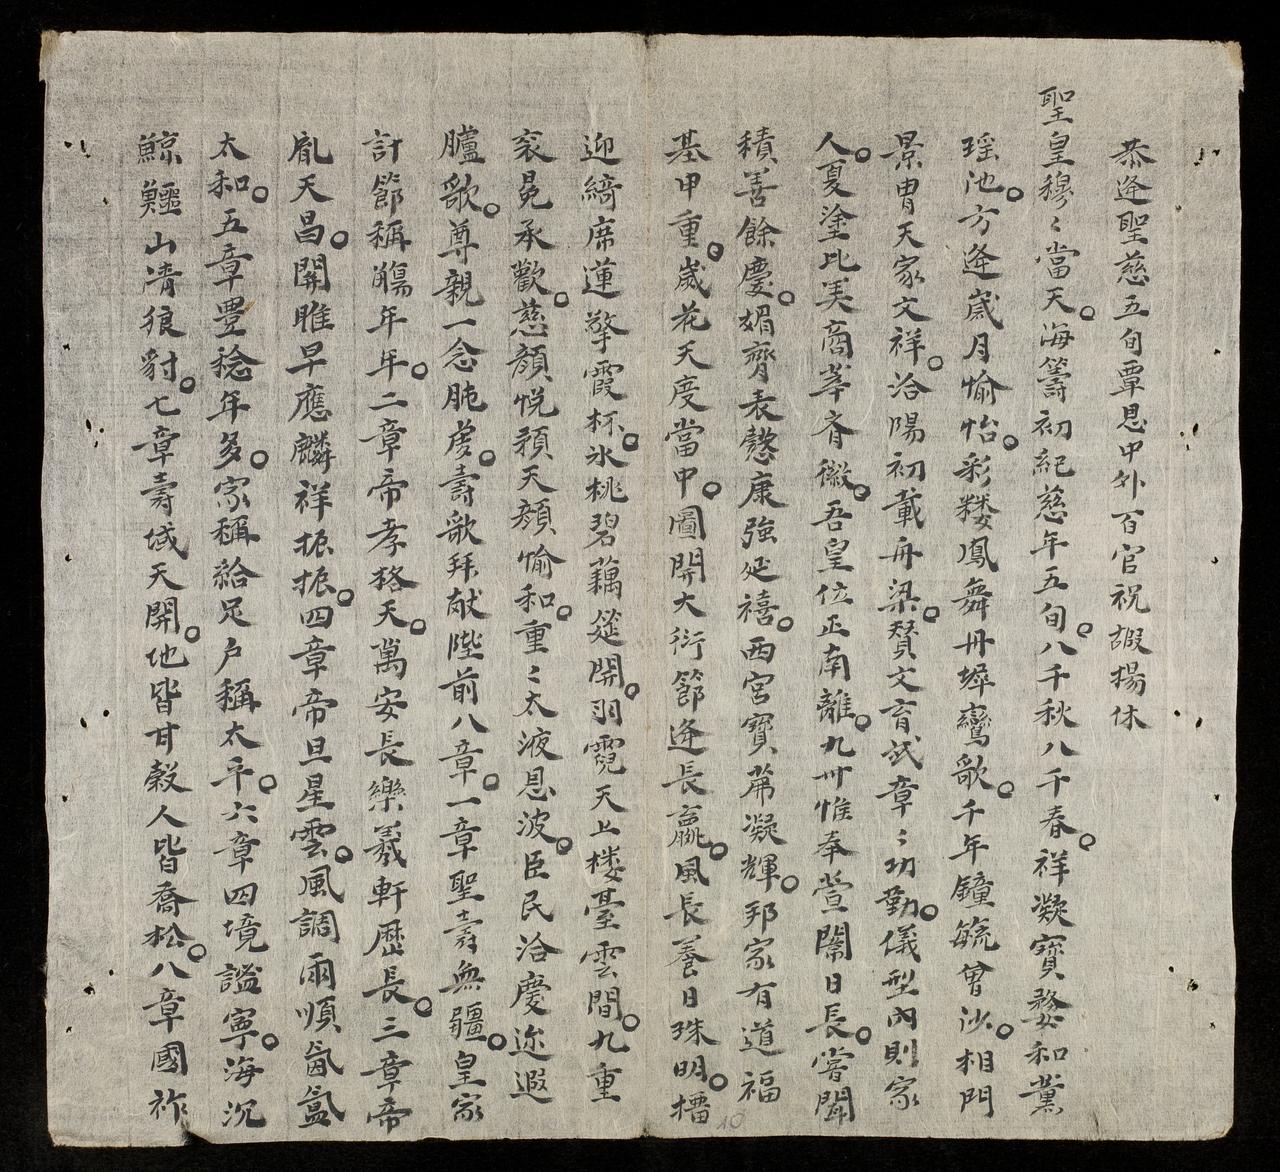 恭逢聖慈五旬覃恩中外百官祝嘏揚休
聖皇穆〻當天。海籌初紀慈年五旬。八千秋八千春。祥凝寶婺和薰
瑶池。方逢歲月愉怡。彩樓鳳舞丹墀鸞歌。千年鐘毓曾沙。相門
景胄天家文祥。洽陽初載舟梁。賛文育武章〻功勤。儀型内則家
人。夏塗比美商莘齐徽。吾皇位正南離。九州惟奉萱闈日長。嘗聞
積善餘慶。媚齊表懿康強延禧。西宮寶萬凝輝。邦家有道福
基申重。歲花天度當中。圖開大衍節逢長嬴。風長養日珠明。播
迎綺席蓮擎霞杯。氷桃碧藕筵開。羽霓天上楼臺雲間。九重
衮冕承歡。慈顏悅豫天顏愉和。重〻太液恩波。臣民洽慶迩遐
臚歌。尊親一念肫虔。壽歌拜献陛前八章。一章聖壽無疆。皇家
計節稱觴年年。二章帝孝格天。萬安長樂羲軒歷長。三章帝
胤天昌。關雎早應麟祥振振。四章帝旦星雲。風調雨順氤氳
太和。五章豊稔年多。家稱給足户稱太平。六章四境謐寧。海沉
鯨鱷山清狼豺。七章壽域天開。地皆甘穀人皆喬松。八章國祚
10